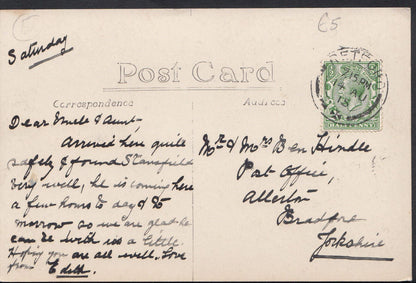 £5
Saturday
Post Card
Correspondence
Address
Dear Uncle & Aunt -
Arrived here quite
safely & found Stansfield
very well, he is coming here
a few hours to day & to
morrow so we are glad he
can be with us a little.
Hoping you are all well, Love
from Edith.
Mr & Mrs Ben Hindle
Post Office,
Allerton
Bradford
Yorkshire
THETFORD
7.15 PM
4 AU
HALFPENNY